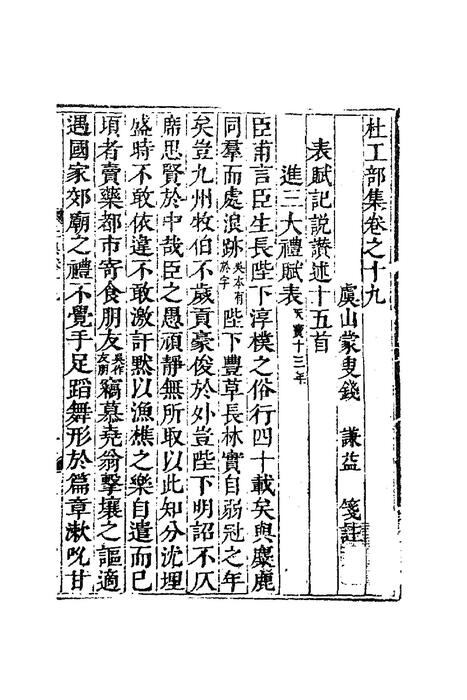 杜工部集卷之十九
虞山蒙叟錢　謙益　箋註
表賦記說讚述十五首
進三大禮賦表天寶十三年
臣甫言臣生長陛下淳樸之俗行四十載矣與麋鹿
同羣而處浪跡吳本有於字陛下豐草長林實自弱冠之年
矣豈九州牧伯不歲貢豪俊於外豈陛下明詔不仄
席思賢於中哉臣之愚頑靜無所取以此知分沈埋
盛時不敢依違不敢激訐默以漁樵之樂自遣而已
頃者賣藥都市寄食朋友吳作友朋竊慕堯翁擊壤之謳適
遇國家郊廟之禮不覺手足蹈舞形於篇章漱吮甘